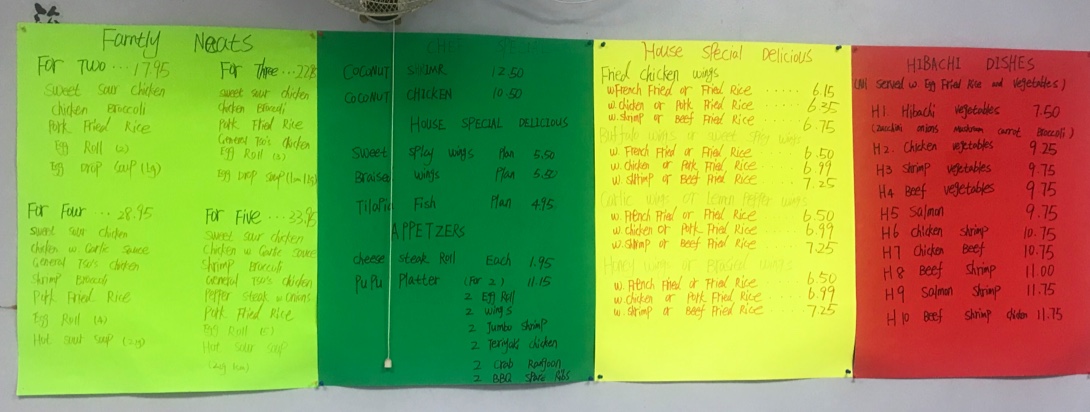 Famtly Neats
For Two ... 17.95
Sweet sour chicken
Chicken Broccoli
Pork Fried Rice
Egg Roll (2)
Egg Drop Soup (1g)
For Three ... 22.95
sweet sour chicken
chicken Broccoli
Pork Fried Rice
General Tso's chicken
Egg Roll (3)
Egg Drop Soup
For Four ... 28.95
sweet sour chicken
chicken w. Garlic sauce
General Tso's chicken
Shrimp Broccoli
Pork Fried Rice
Egg Roll (4)
Hot sour soup (2g)
For Five ... 33.95
Sweet sour chicken
Chicken w Garlic sauce
Shrimp Broccoli
General Tso's chicken
Pepper steak w onions
Pork Fried Rice
Egg Roll (5)
Hot sour soup
CHEF SPECIAL
COCONUT SHRIMP 12.50
COCONUT CHICKEN 10.50
HOUSE SPECIAL DELICIOUS
Sweet spicy wings Plan 5.50
Braised wings Plan 5.50
Tilapia Fish Plan 4.95
APPETZERS
cheese steak Roll Each 1.95
PuPu Platter (For 2) 11.15
2 Egg Roll
2 wings
2 Jumbo shrimp
2 Teriyaki chicken
2 Crab Rangoon
2 BBQ Spare Ribs
House Special Delicious
Fried chicken wings
w French Fried or Fried Rice ..... 6.15
w. chicken or Pork Fried Rice ..... 6.35
w. shrimp or Beef Fried Rice ..... 6.75
Buffalo wings or sweet spicy wings
w. French Fried or Fried Rice ..... 6.50
w. chicken or Pork Fried Rice ..... 6.99
w. shrimp or Beef Fried Rice ..... 7.25
Garlic wings or Lemon Pepper wings
w. French Fried or Fried Rice ..... 6.50
w. chicken or Pork Fried Rice ..... 6.99
w. shrimp or Beef Fried Rice ..... 7.25
Honey wings or Braised wings
w. French Fried or Fried Rice 6.50
w. chicken or Pork Fried Rice ..... 6.99
w. shrimp or Beef Fried Rice ..... 7.25
HIBACHI DISHES
(All served w Egg Fried Rice and vegetables)
H1 Hibachi vegetables 7.50
(zucchini onions mushroom carrot Broccoli)
H2. Chicken vegetables 9.25
H3 shrimp vegetables 9.75
H4 Beef vegetables 9.75
H5 Salmon 9.75
H6 chicken shrimp 10.75
H7 Chicken Beef 10.75
H8 Beef Shrimp 11.00
H9 Salmon Shrimp 11.75
H10 Beef shrimp chicken 11.75